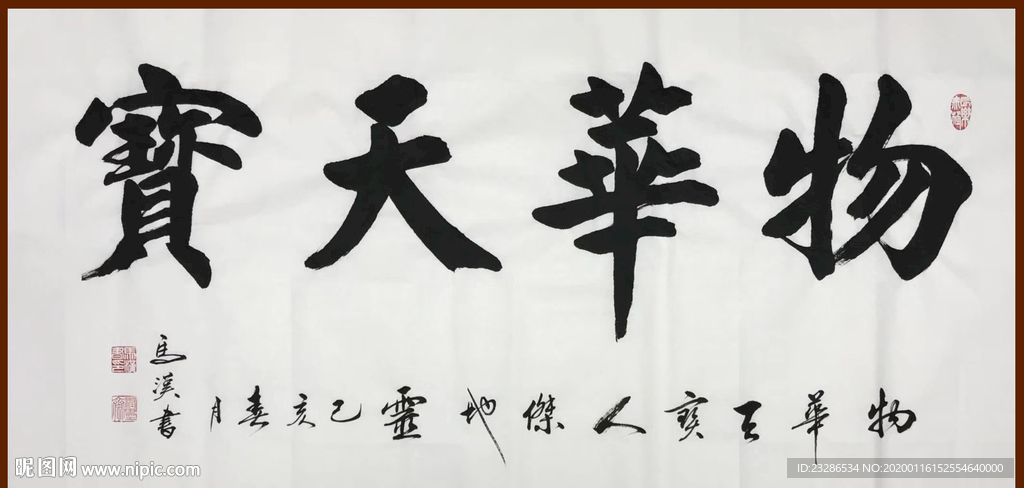 物華天寶
物華天寶人傑地靈己亥春月
馬溪書
昵图网 www.nipic.com
ID:23286534 NO:20200116152554640000